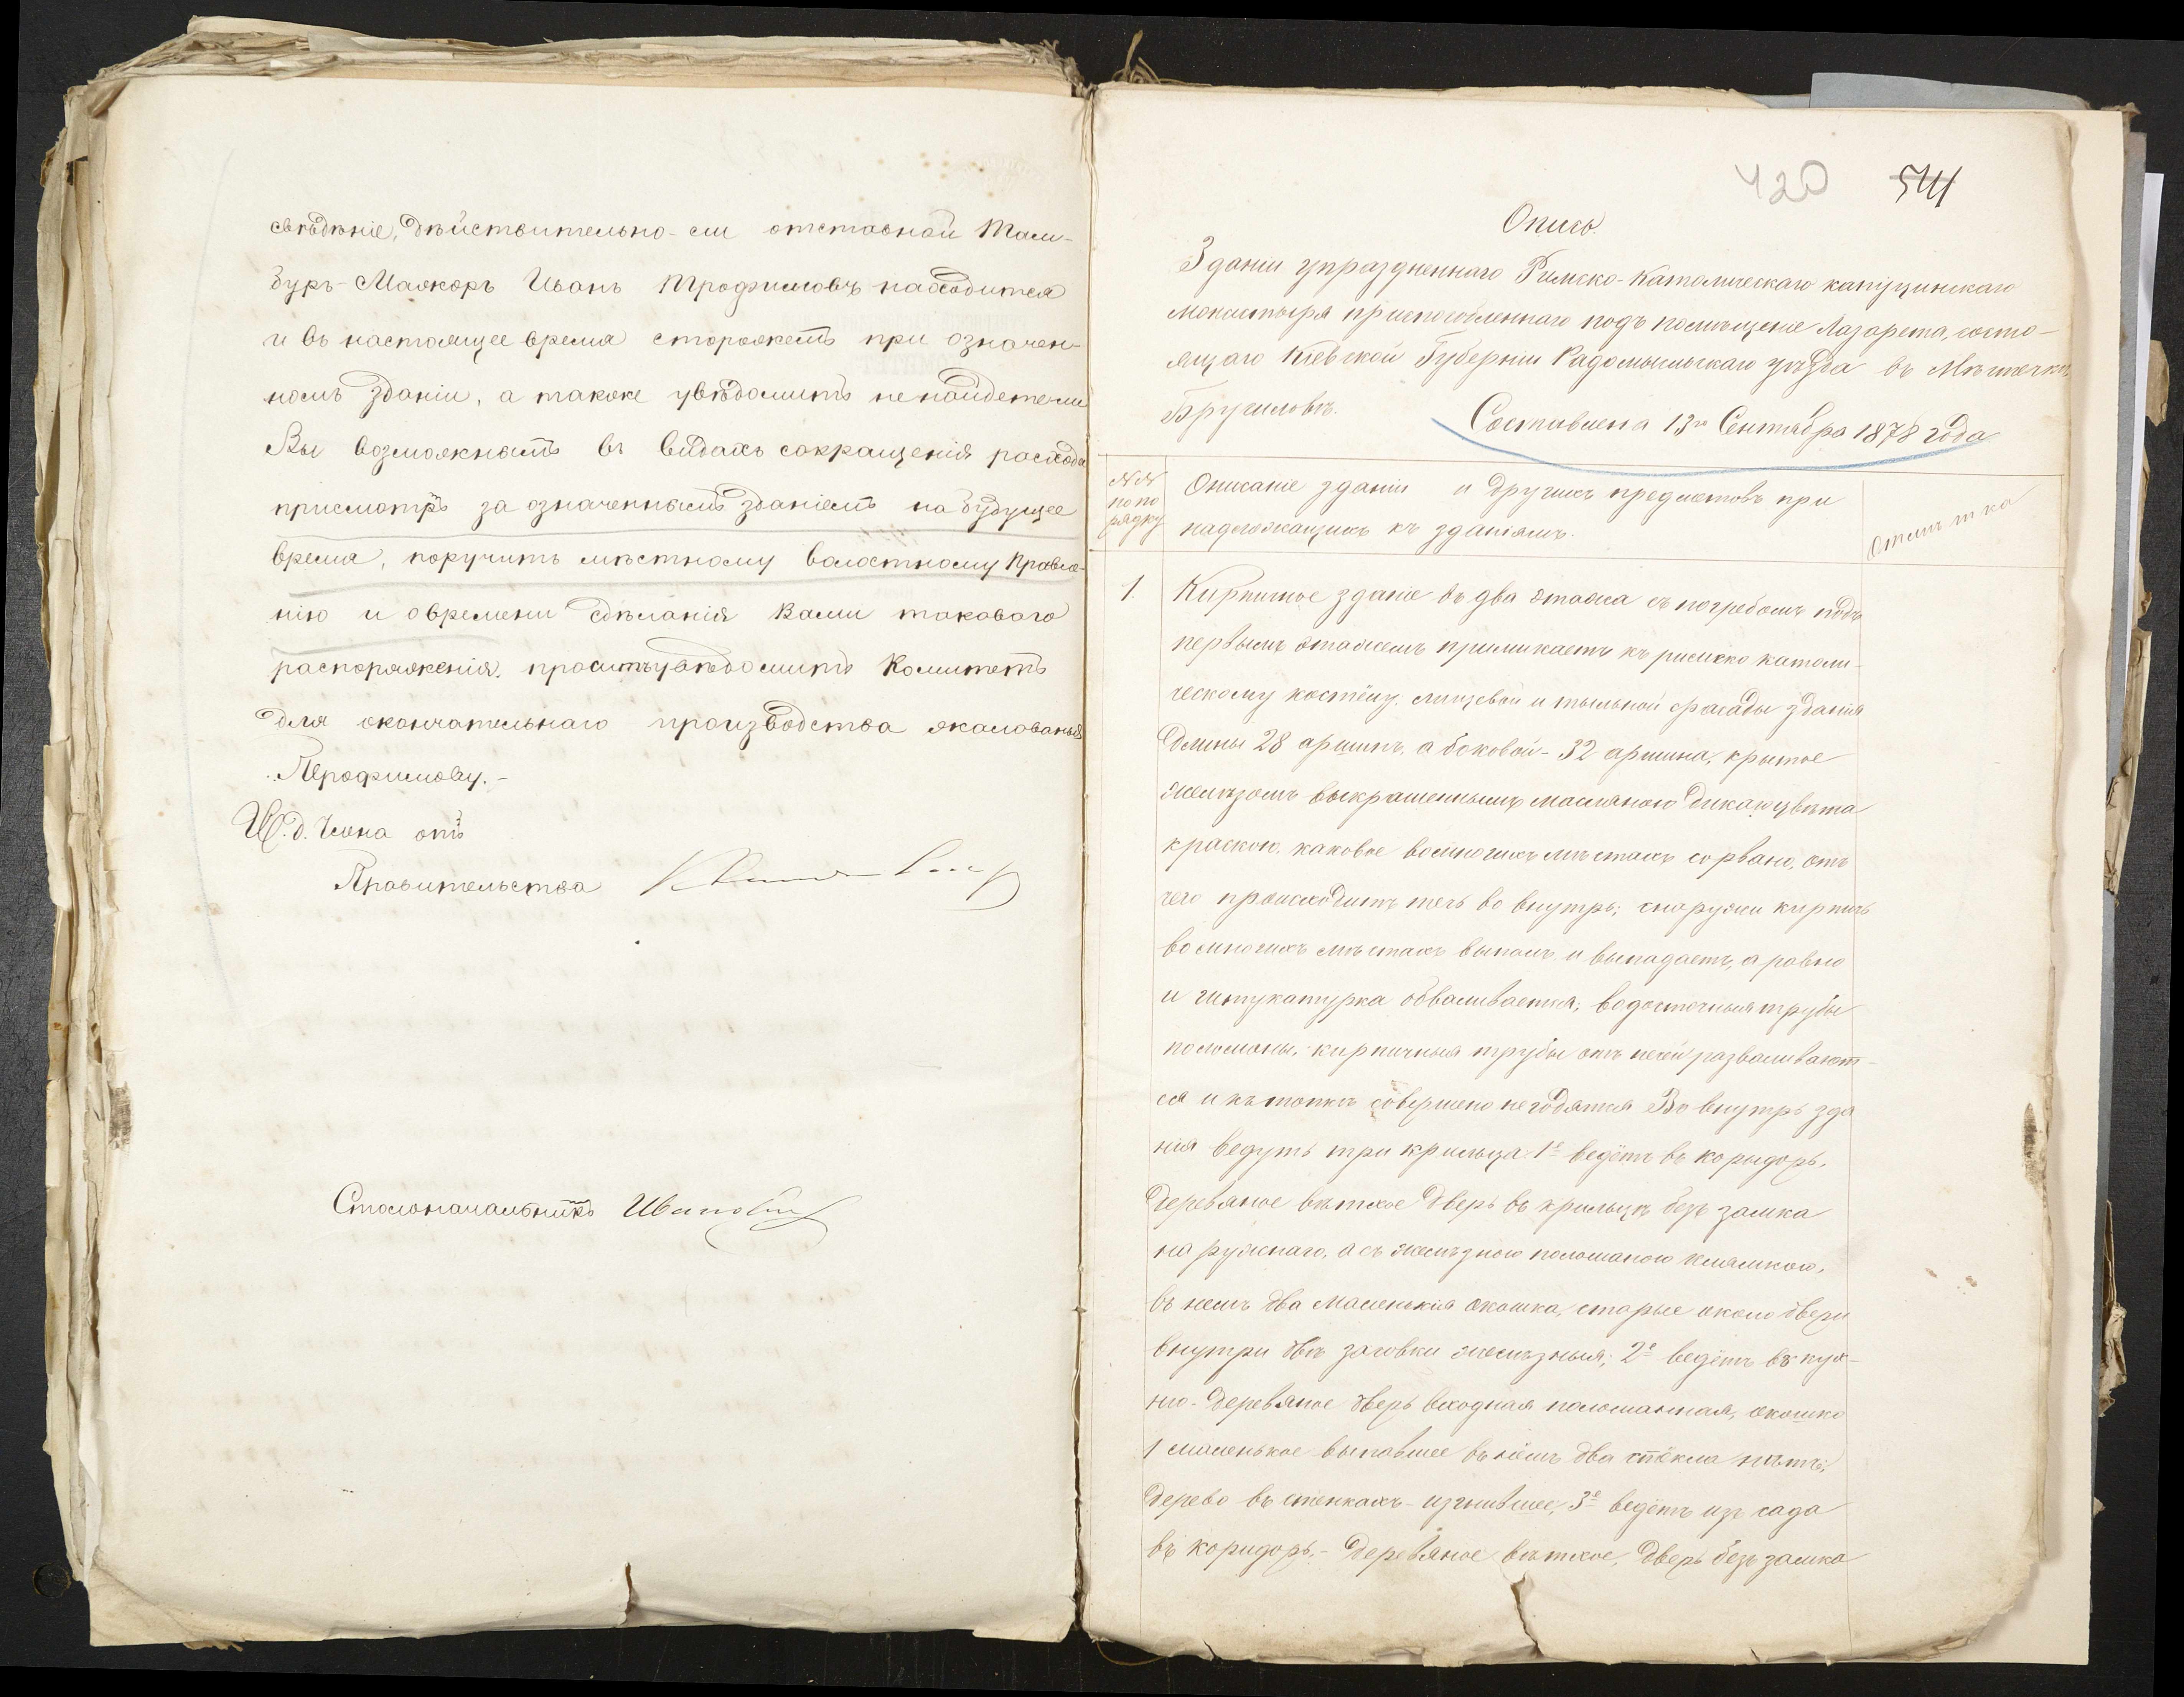 свѣдѣніе, дѣйствительно-ли отставной Там-
буръ-Мажоръ Иванъ Трофимовъ находится
и въ настоящее время сторожемъ при означен-
номъ зданіи, а также увѣдомить ненайдетели
Вы возможность въ видахъ сокращенія расхода
присмотръ за означеннымъ зданіемъ на будущее
время, поручить мѣстному волостному правле-
нію и овремени сдѣланія Вами таковаго
распоряженія, проситъ увѣдомить Комитетъ
для окончательнаго производства жалованья
Трофимову.-
И.д. Члена отъ
Правительства
Столоначальникъ
420 541
Опись.
Зданіи упраздненнаго Римско-Католическаго капуцинскаго
монастыря приспособленнаго подъ помѣщеніе Лазарета, состо-
ящаго Кіевской Губерніи Радомысльскаго уѣзда въ Мѣстечкѣ
Брусиловѣ.
Составлена 13го Сентября 1878 года
№№
по по
рядку
Описаніе зданіи и другихъ предметовъ при
надлежащихъ къ зданіямъ.
Отмѣтка
1. Кирпичное зданіе въ два этажа съ погребомъ подъ
первымъ этажемъ примикаетъ къ римско католи-
ческому костёлу. лицевой и тыльной фасады зданія
длины 28 аршинъ, а боковой - 32 аршина, крытое
желѣзомъ выкрашеннымъ масляною дикаго цвѣта
краскою. каковое вомногихъ мѣстахъ сорвано, отъ
чего происходитъ течь во внутрь; снаружи кирпичъ
вомногихъ мѣстахъ выпалъ и выпадаетъ, а равно
и штукатурка обваливается; водосточныя трубы
поломаны, кирпичныя трубы отъ печей разваливают-
ся и къ топкѣ совершено негодятся Во внутрь зда
нія ведутъ три крильца 1е ведётъ въ корыдоръ,
деревяное вѣтхое дверь въ крильцѣ безъ замка
на ружнаго, а съ желѣзною поломаною клямкою,
въ немъ два маленькія окошка, старые около двери
внутри двѣ заговки желѣзныя; 2е ведётъ въ кух-
ню - деревяное дверь входная поломанная, окошко
1 маленькое выпавшее въ нёмъ два стёкла нѣтъ;
дерево въ стенкахъ - изгнившее; 3е ведётъ изъ сада
въ коридоръ, - деревяное вѣтхое, дверь безъ замка